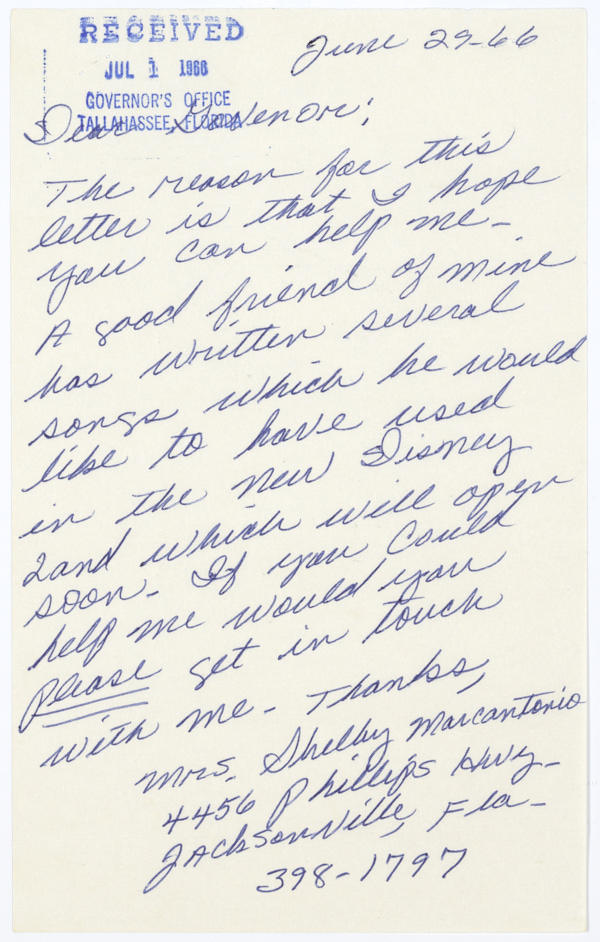 RECEIVED
JUL 1 1966
GOVERNOR'S OFFICE
TALLAHASSEE, FLORIDA
June 29-66
Dear Govenor:
The reason for this
letter is that I hope
you can help me-
A good friend of mine
has written several
songs which he would
like to have used
in the new Disney
Land which will open
soon. If you could
help me would you
please get in touch
with me. Thanks,
Mrs. Shelby Marcantonio
4456 Phillips Hwy.
Jacksonville, Fla-
398-1797